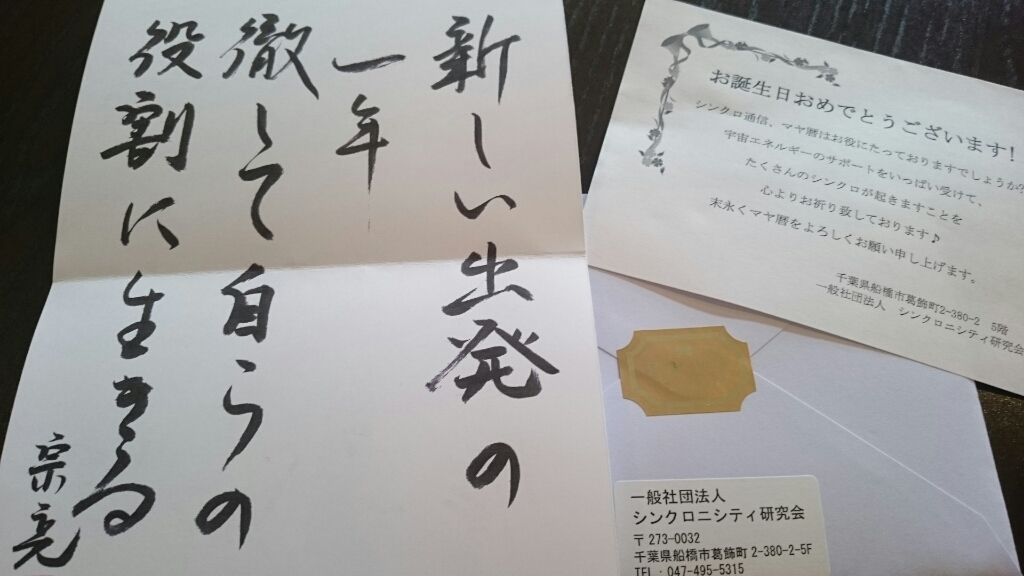 新しい出発の
一年
徹して自らの
役割に生きる
宗亮
お誕生日おめでとうございます!
シンクロ通信、マヤ暦はお役にたっておりますでしょうか?
宇宙エネルギーのサポートをいっぱい受けて、
たくさんのシンクロが起きますことを
心よりお祈り致しております♪
末永くマヤ暦をよろしくお願い申し上げます。
千葉県船橋市葛飾町2-380-2 5階
一般社団法人 シンクロニシティ研究会
一般社団法人
シンクロニシティ研究会
〒273-0032
千葉県船橋市葛飾町2-380-2-5F
TEL:047-495-5315